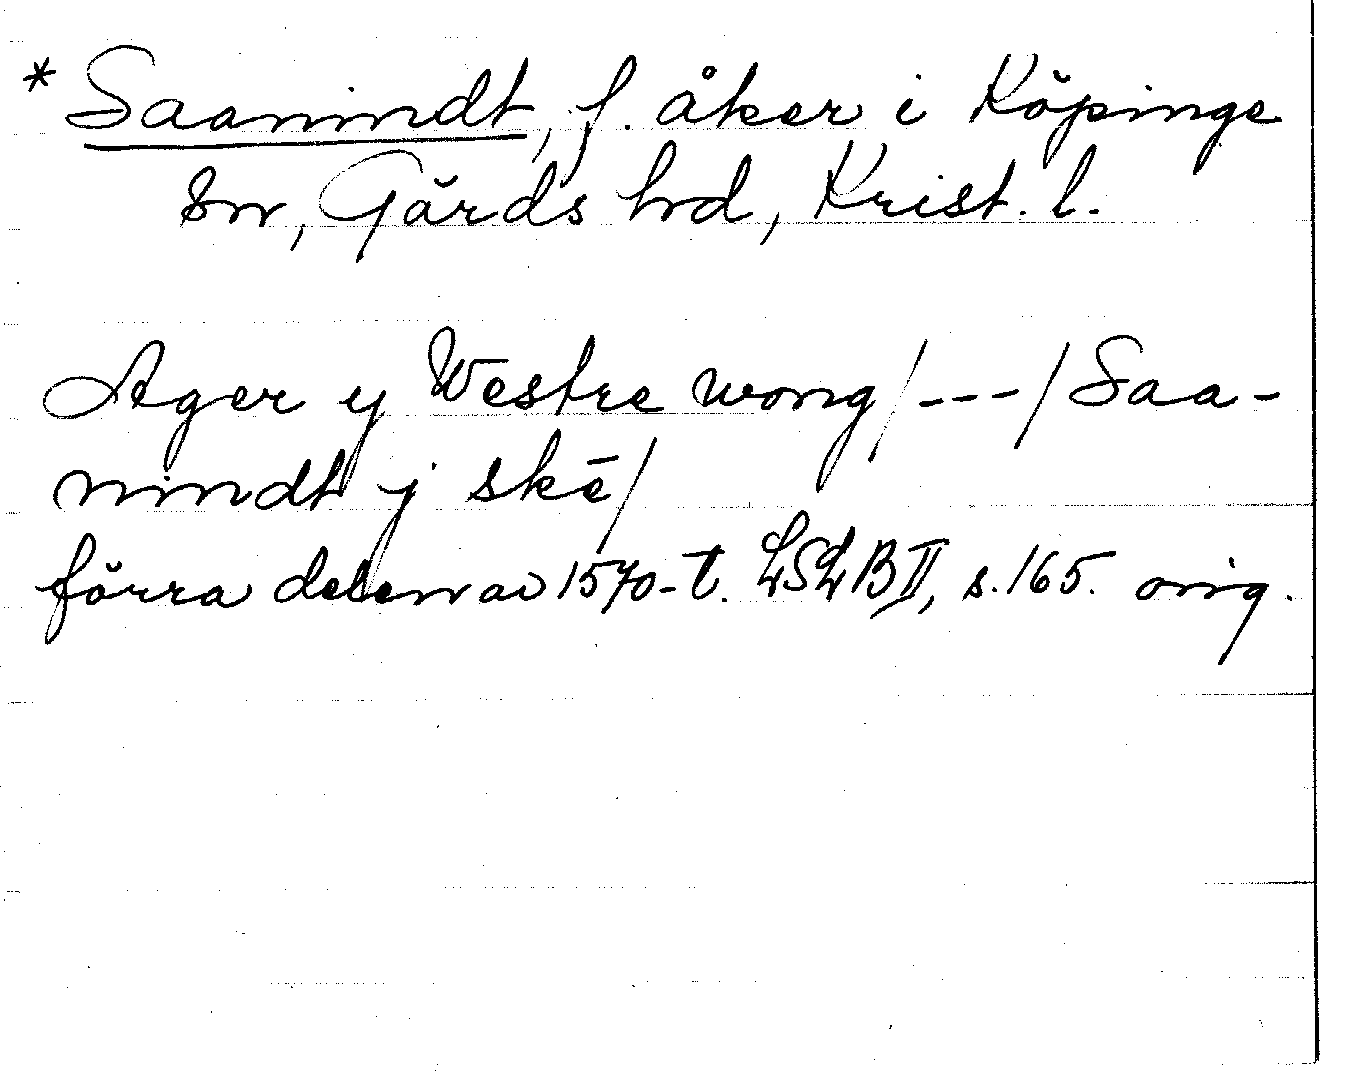 * Saanindt, f. åker i Köpinge
sn, Gärds hd, Krist. l.
Ager y Westre wong/---/Saa-
nindt j skē/
förra delen av 1570-t. LSLB II, s. 165. orig.